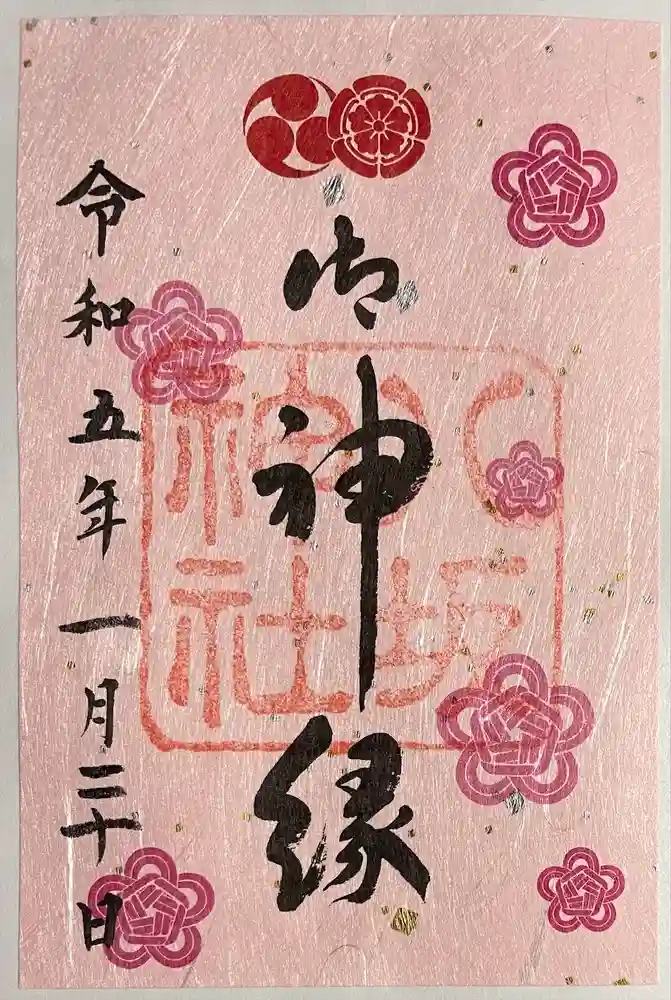 御神縁
八坂
神社
令和五年一月二十日